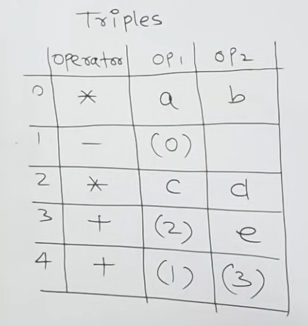 Triples
operator op1 op2
0 * a b
1 - (0)
2 * c d
3 + (2) e
4 + (1) (3)